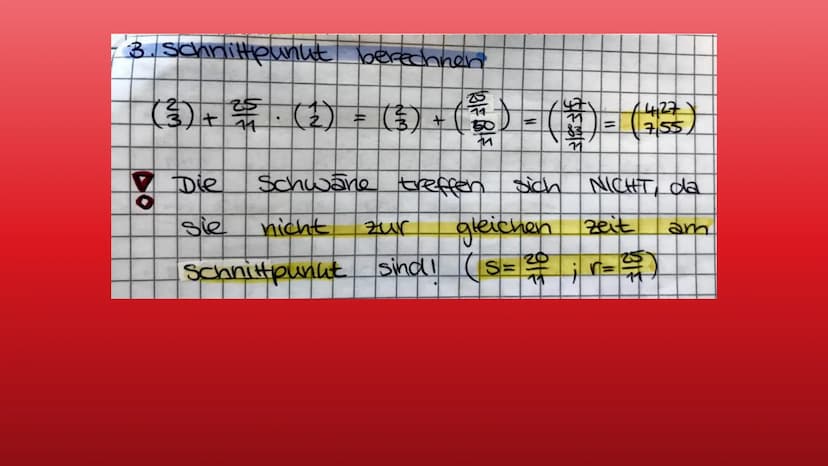 3. Schnittpunkt berechnen
(2 3) + 25/11 · (1 2) = (2 3) + (25/11 50/11) = (47/11 83/11) = (4,27 7,55)
! Die Schwäne treffen sich NICHT, da
sie nicht zur gleichen zeit am
Schnittpunkt sind! (s= 20/11 ; r= 25/11)